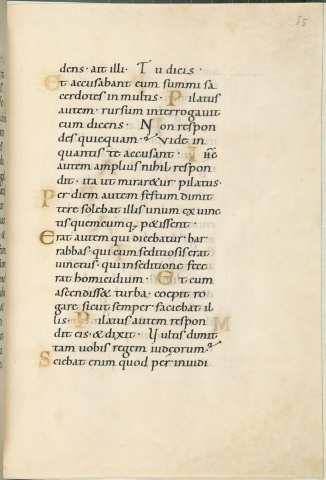 55
dens · ait illi · Tu dicis ·
Et accusabant eum summi sa
cerdotes in multis · Pilatus
autem · rursum interrogavit
eum dicens · Non respon
des quicquam · Vide in
quantis te accusant · Iħc
autem amplius nihil respon
dit · ita ut miraretur pilatus ·
Per diem autem festum dimit
tere solebat illis unum ex vinc
tis quemcumq; petissent ·
Erat autem qui dicebatur bar
rabbas · qui cum seditiosis erat
uinctus · qui in seditione fece
rat homicidium · Et cum
ascendisset turba · coepit ro
gare sicut semper faciebat il
lis · Pilatus autem respon
dit eis · & dixit · Vultis dimit
tam uobis regem iudęorum
Sciebat enim quod per inuidi